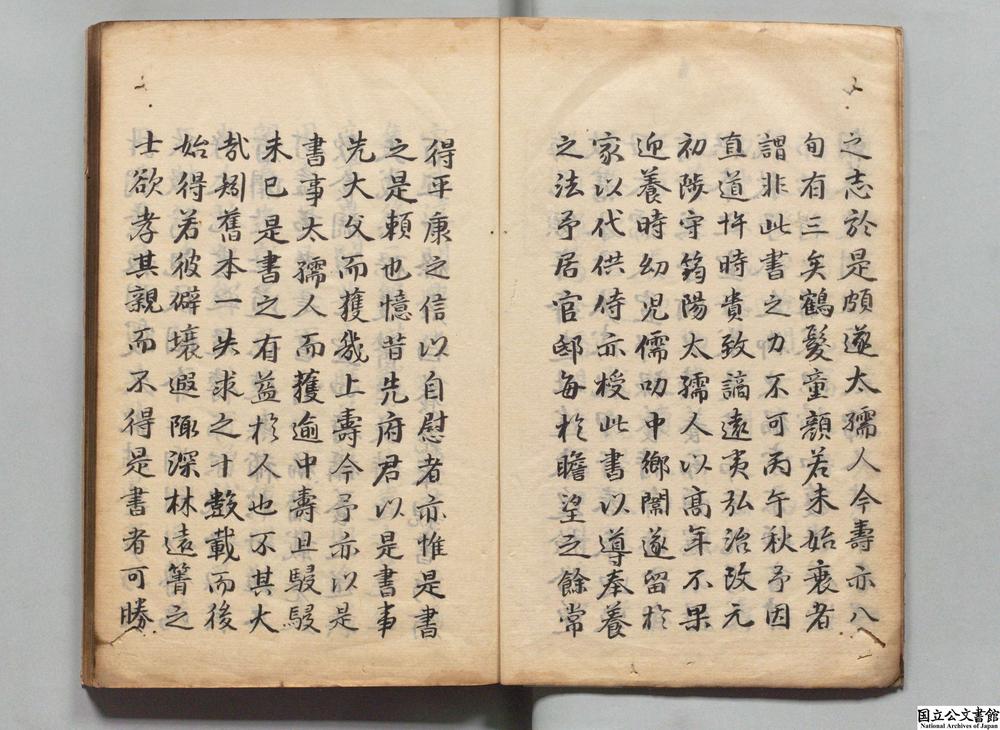 之志於是頗遂太孺人今壽亦八
旬有三矣鶴髮童顏若未始衰者
謂非此書之力不可丙午秋予因
直道忤時貴致謫遠夷弘治改元
初陟守筠陽太孺人以高年不果
迎養時幼児儒叨中鄉闈遂留於
家以代供侍亦授此書以導奉養
之法予居官邸每於瞻望之餘常
得平康之信以自慰者亦惟是書
之是頼也憶昔先府君以是書事
先大父而獲幾上壽今予亦以是
書事太孺人而獲逾中壽且駸駸
未已是書之有益於人也不其大
哉矧舊本一失求之十數載而後
始得若彼僻壤遐陬深林遠箐之
士欲孝其親而不得是書者可勝
国立公文書館
National Archives of Japan